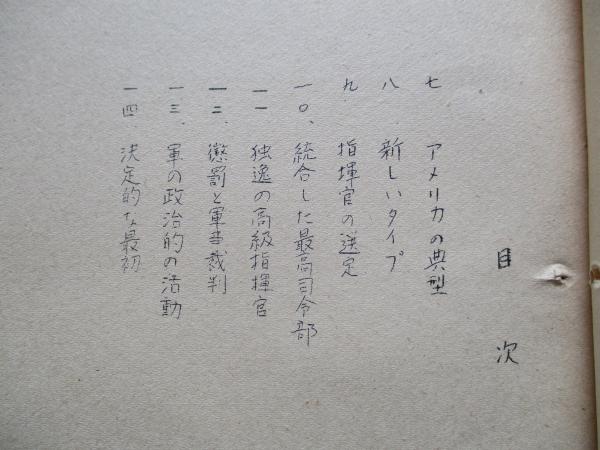 目次
七 アメリカの典型
八 新しいタイプ
九 指揮官の選定
一〇、統合した最高司令部
一一 独逸の高級指揮官
一二、懲罰と軍事裁判
一三、軍の政治的の活動
一四、決定的な最初